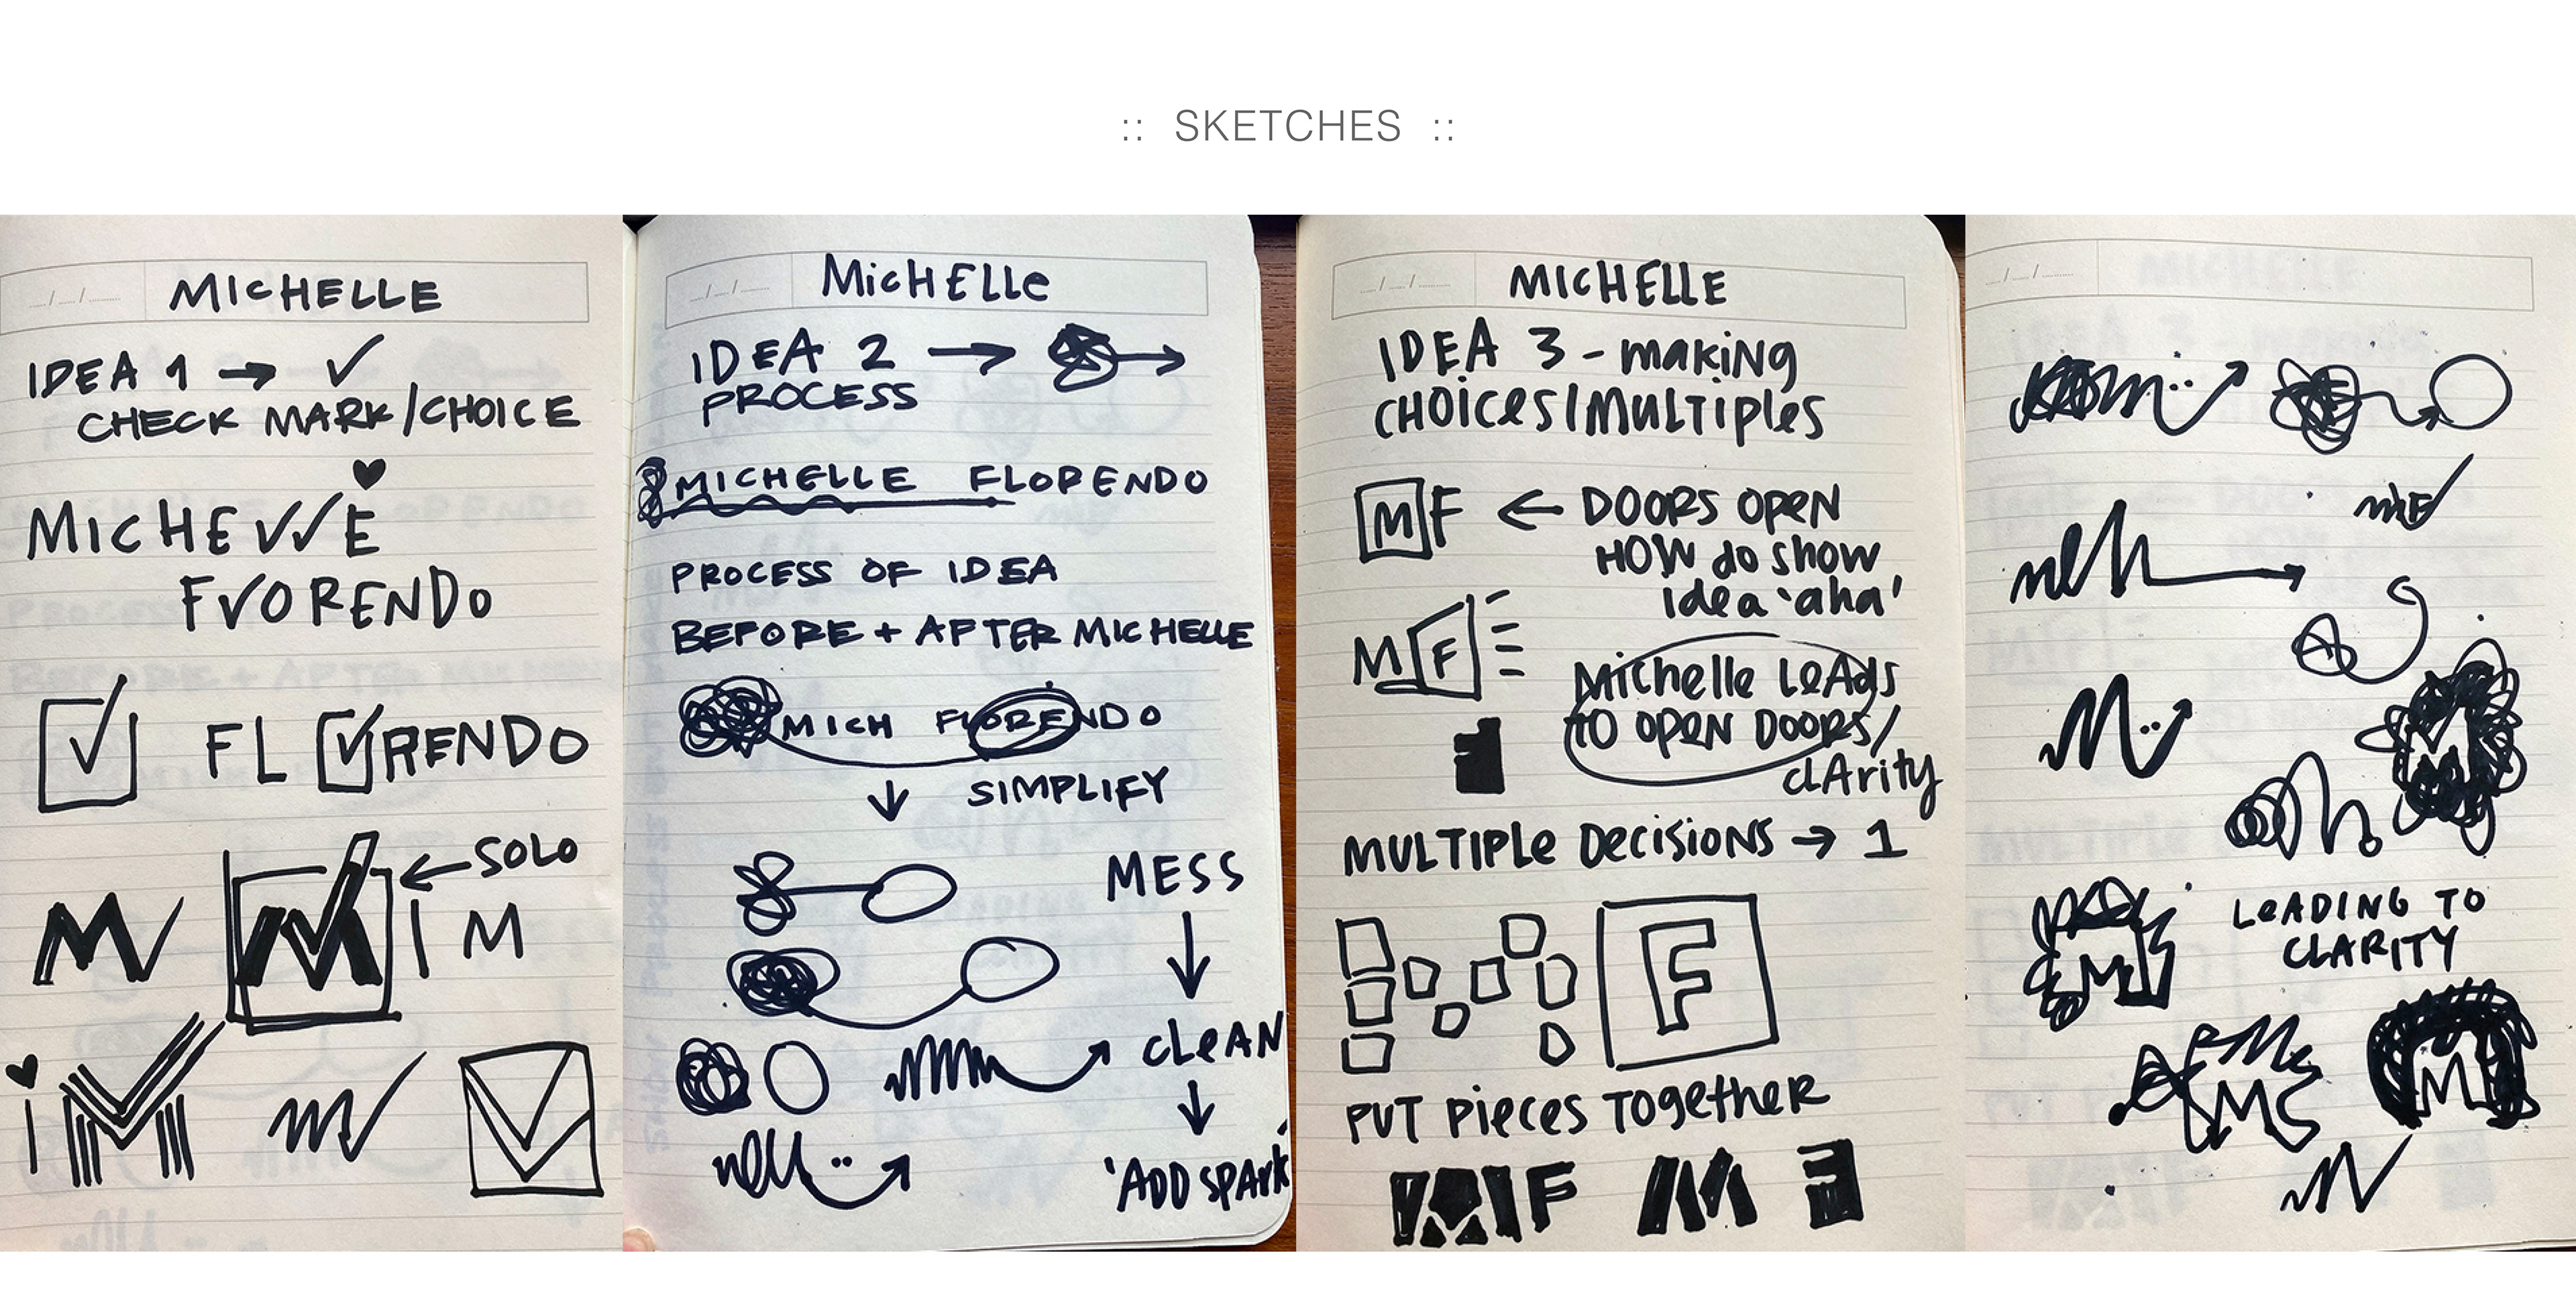 :: SKETCHES ::
MICHELLE
IDEA 1 → ✓
CHECK MARK/CHOICE
MICHE✓✓E
F✓ORENDO
FL ☑RENDO
← SOLO
M
I M
i M
m✓
MicHElle
IDEA 2 →
PROCESS
MICHELLE FLORENDO
PROCESS OF IDEA
BEFORE + AFTER MICHELLE
MICH FLORENDO
↓ SIMPLIFY
MESS
↓
CLEAN
↓
'ADD SPARK'
MICHELLE
IDEA 3 - making
CHOICES/MULTIPLES
MF ← DOORS OPEN
HOW do show
idea 'aha'
MF
Michelle LeAds
TO OPEN DOORS/
clArity
F
MULTIPLE Decisions → 1
F
PUT Pieces TOgetheR
MF M F
M
LeADING TO
CLARITY
M
MC
M